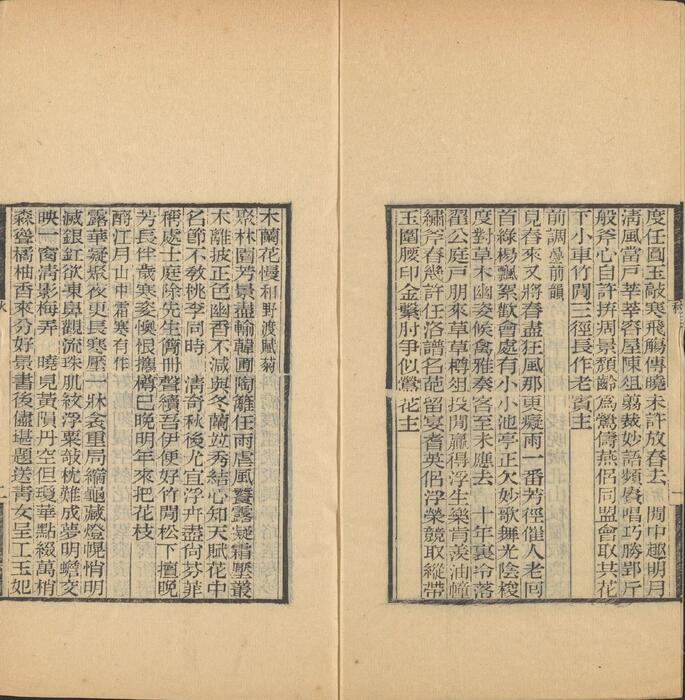 度任圓玉敲寒飛觴傳曉未許放春去 閒中趣明月
淸風當戶莘莘容屋陳俎翦裁妙語頻賡唱巧勝郢斤
般斧心自許拚凋景頹齡爲鶯儔燕侶同盟會取共花
下小車竹閒三徑長作老賓主
前調疊前韻
見春來又將春盡狂風那更癡雨一番芳徑催人老回
首綠楊飄絮歡會處有小小池亭正欠妙歌舞光陰梭
度對草木幽姿候禽雅奏客至未應去 十年裏冷落
翟公庭戶朋來草草樽俎投閒贏得浮生樂肯羨油幢
繡斧春幾許任洛譜名葩留宴耆英侶浮榮競取縱帶
玉圍腰印金繫肘爭似鶯花主
木蘭花慢和野渡賦菊
聚林園芳景盡輸韓圃陶籬任雨虐風饕露凝霜壓叢
木離披正色幽香不減與冬蘭竝秀結心知天賦花中
名節不敎桃李同時 淸奇秋後尤宜浮卉盡尙芬菲
稱處士庭除先生簡冊聲續吾伊便好竹閒松下擅晚
芳長伴歲寒姿懊恨攜樽巳晚明年來把花枝
酹江月山中霜寒有作
露華凝聚夜更長寒壓一牀衾重局縮龜藏燈幌悄明
滅銀釭欲凍鼻觀流珠肌紋浮粟敧枕難成夢明蟾交
映一窗淸影梅弄 曉見黃隕丹空但瓊華點綴萬梢
森聳橘柚香來分好景書後儘堪題送靑女呈工玉妃